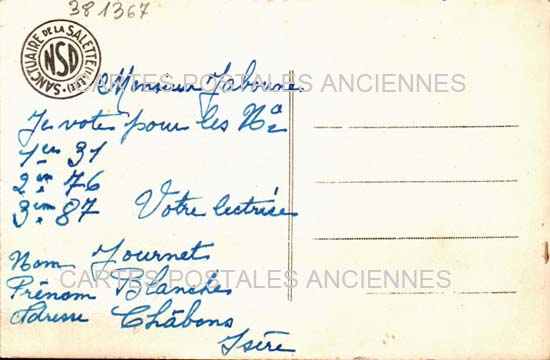 381367
SANCTUAIRE DE LA SALETTE (ISÈRE)
NSD
Monsieur Jaboune
CARTES POSTALES ANCIENNES
Je votes pour les Nos
1er 31
2em 76
3em 87 Votre lectrise
Nom Journet
CARTES POSTALES ANCIENNES
Prénom Blanche
Adresse Châbons
Isère